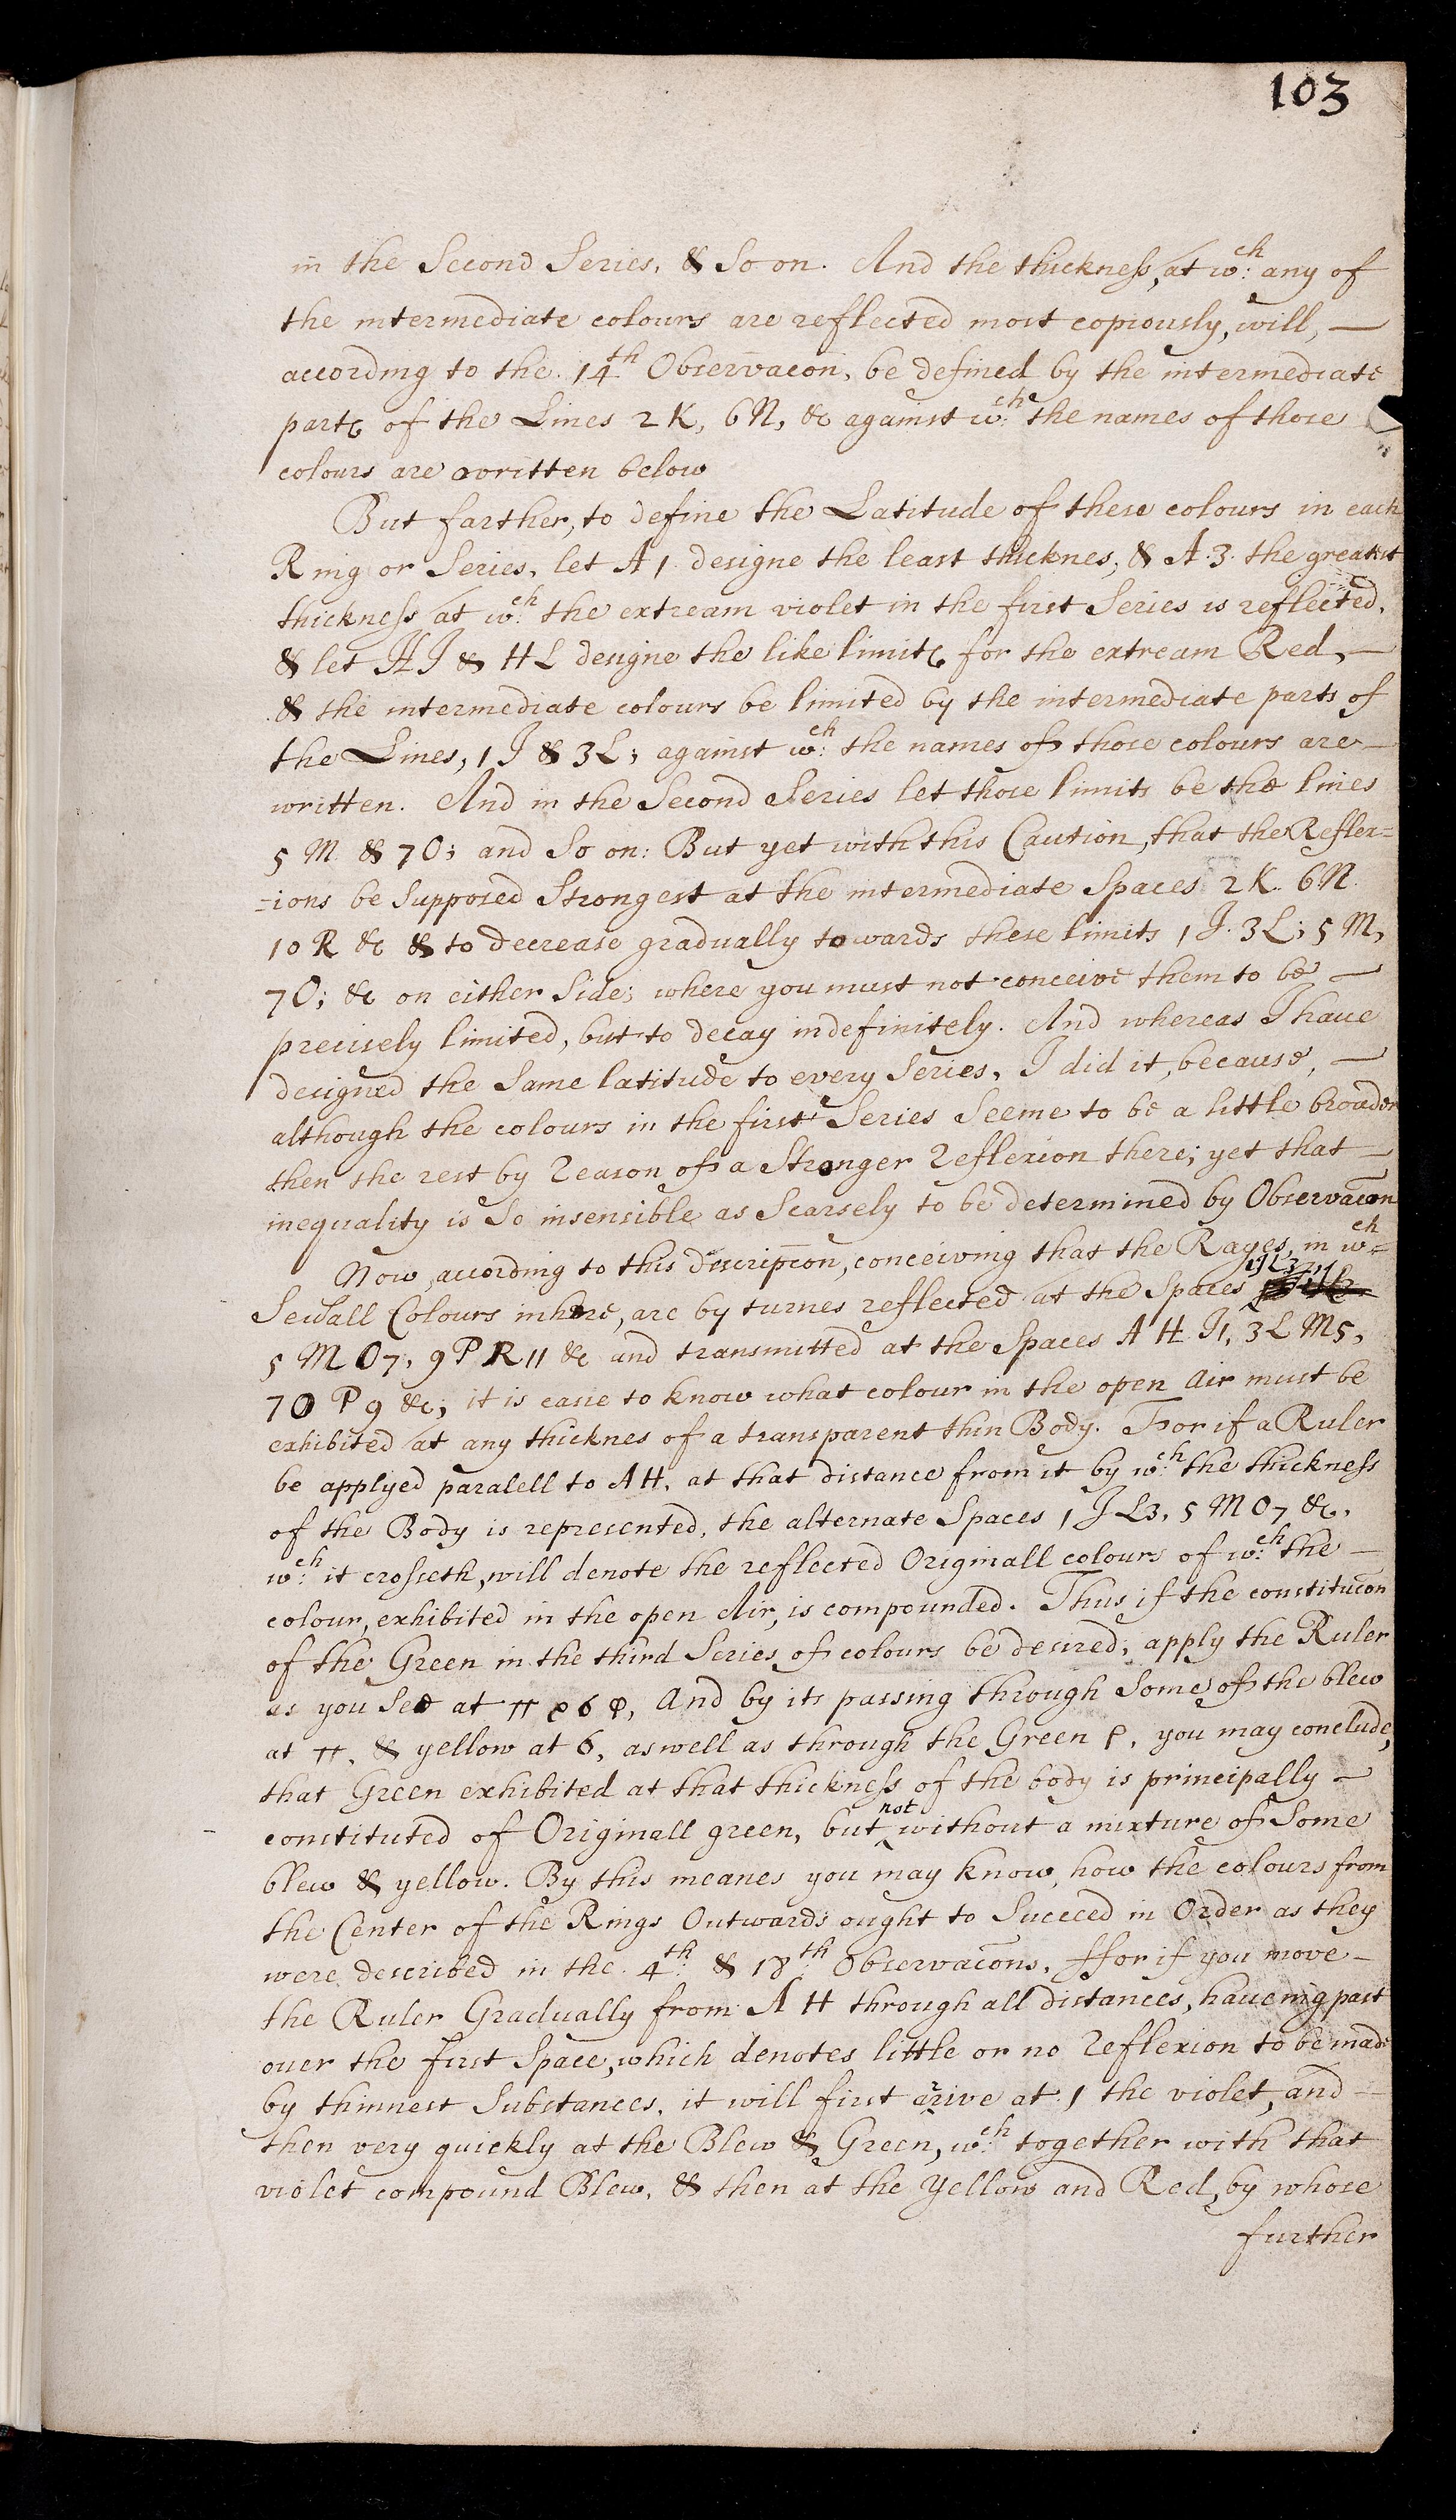 103
in the Second Series, & So on. And the thickness, at wch: any of
the intermediate colours are reflected most copiously, will, —
according to the 14th Observacon, be defined by the intermediate
partes of the Lines 2 K, 6 N, &c against wch: the names of those
colours are written below
But farther, to define the Latitude of these colours in each
Ring or Series, let A 1 designe the least thicknes, & A 3 the greatest
thickness at wch: the extream violet in the first Series is reflected,
& let HI & HL designe the like limites for the extream Red, —
& the intermediate colours be limited by the intermediate parts of
the Lines, 1 I & 3 L; against wch: the names of those colours are —
written. And in the Second Series let those limits be the lines
5 M & 7 O; and So on: But yet with this Caution, that the Reflex=
=ions be Supposed Strongest at the intermediate Spaces 2 K. 6 N.
10 R &c & to decrease gradually towards these limits 1 I. 3 L; 5 M,
7 O; &c on either Side; where you must not conceive them to be —
precisely limited, but to decay indefinitely. And whereas I haue
designed the Same latitude to every Series, I did it, because, —
although the colours in the first Series Seeme to be a little broader
then the rest by Reason of a Stronger Reflexion there; yet that —
inequality is So insensible as Scarsely to be determined by Observacon
Now, according to this descripcon, conceiving that the Rayes, in wch=
Seuerall Colours inhere, are by turnes reflected at the Spaces 1 I L 3,
5 M O 7, 9 P R 11 &c and transmitted at the Spaces A H I 1, 3 L M 5,
7 O P 9 &c, it is easie to know what colour in the open Air must be
exhibited at any thicknes of a transparent thin Body. For if a Ruler
be applyed paralell to A H, at that distance from it by wch: the thickness
of the Body is represented, the alternate Spaces 1 I L 3, 5 M O 7 &c,
wch: it crosseth, will denote the reflected Originall colours of wch: the —
colour, exhibited in the open Air, is compounded. Thus if the constitucon
of the Green in the third Series of colours be desired, apply the Ruler
as you See at π ρ б φ, And by its passing through Some of the blew
at π, & yellow at б, aswell as through the Green ρ, you may conclude,
that Green exhibited at that thickness of the body is principally —
constituted of Originall green, but not without a mixture of Some
blew & yellow. By this meanes you may know, how the colours from
the Center of the Rings Outwards ought to Succeed in Order as they
were described in the 4th: & 18th: Observacons, ffor if you move —
the Ruler Gradually from A H through all distances, haueing past
ouer the first Space, which denotes little or no Reflexion to be made
by thinnest Substances, it will first arrive at 1 the violet, and —
then very quickly at the Blew & Green, wch: together with that
violet compound Blew, & then at the Yellow and Red, by whose
further